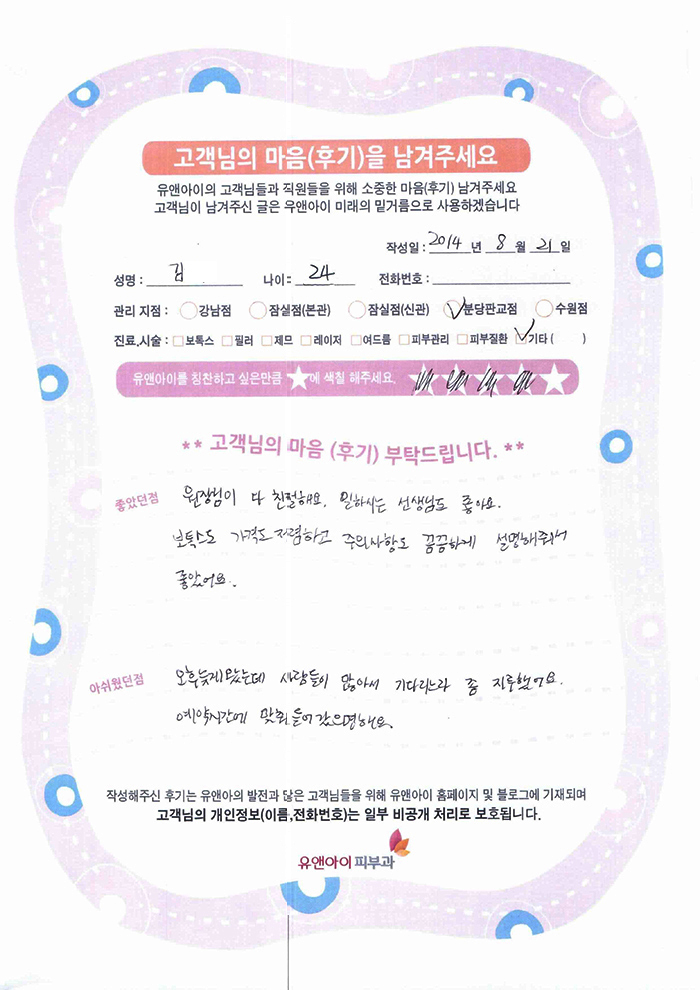 고객님의 마음(후기)을 남겨주세요
유앤아이의 고객님들과 직원들을 위해 소중한 마음(후기) 남겨주세요
고객님이 남겨주신 글은 유앤아이 미래의 밑거름으로 사용하겠습니다
작성일 : 2014 년 8 월 21 일
성명 : 김 나이 : 24 전화번호 :
관리 지점 : 강남점 잠실점(본관) 잠실점(신관) 분당판교점 수원점
진료,시술 : 보톡스 필러 제모 레이저 여드름 피부관리 피부질환 기타 ( )
유앤아이를 칭찬하고 싶은만큼 ★에 색칠 해주세요.
** 고객님의 마음 (후기) 부탁드립니다. **
좋았던점 원장님이 다 친절해요. 일하시는 선생님도 좋아요.
보톡스도 가격도 저렴하고 주의사항도 꼼꼼하게 설명해주셔서
좋았어요.
아쉬웠던점 오후늦게 왔는데 사람들이 많아서 기다리느라 좀 지루했어요.
예약시간에 맞춰 들어갔으면해요.
작성해주신 후기는 유앤아의 발전과 많은 고객님들을 위해 유앤아이 홈페이지 및 블로그에 기재되며
고객님의 개인정보(이름,전화번호)는 일부 비공개 처리로 보호됩니다.
유앤아이피부과